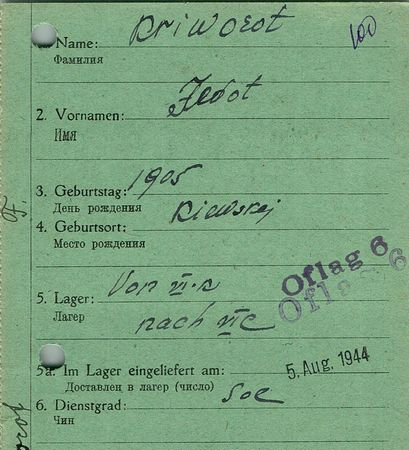 100
1. Name: Kriworot
Фамилия
2. Vornamen: Fedot
Имя
3. Geburtstag: 1905
День рождения
4. Geburtsort: Kiewskej
Место рождения
Oflag 6
Oflag 6
5. Lager: Von VI-K
Лагер nach VI C
5a. Im Lager eingeliefert am: 5. Aug. 1944
Доставлен в лагер (число)
6. Dienstgrad: Soe
Чин
F.
orot